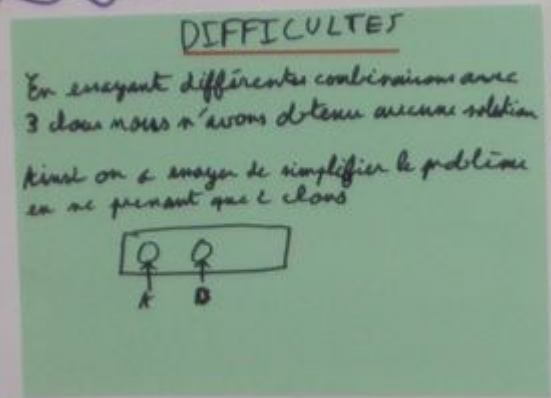 DIFFICULTES
En essayant différentes combinaisons avec
3 clous nous n'avons obtenu aucune solution
Ainsi on a essayer de simplifier le problème
en ne prenant que 2 clous
A B